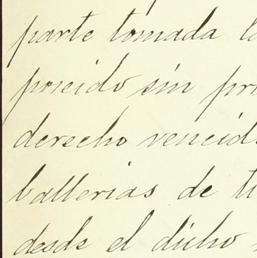 parte tomada la
poseido sin pri
derecho vencid
ballerias de ti
desde el dicho